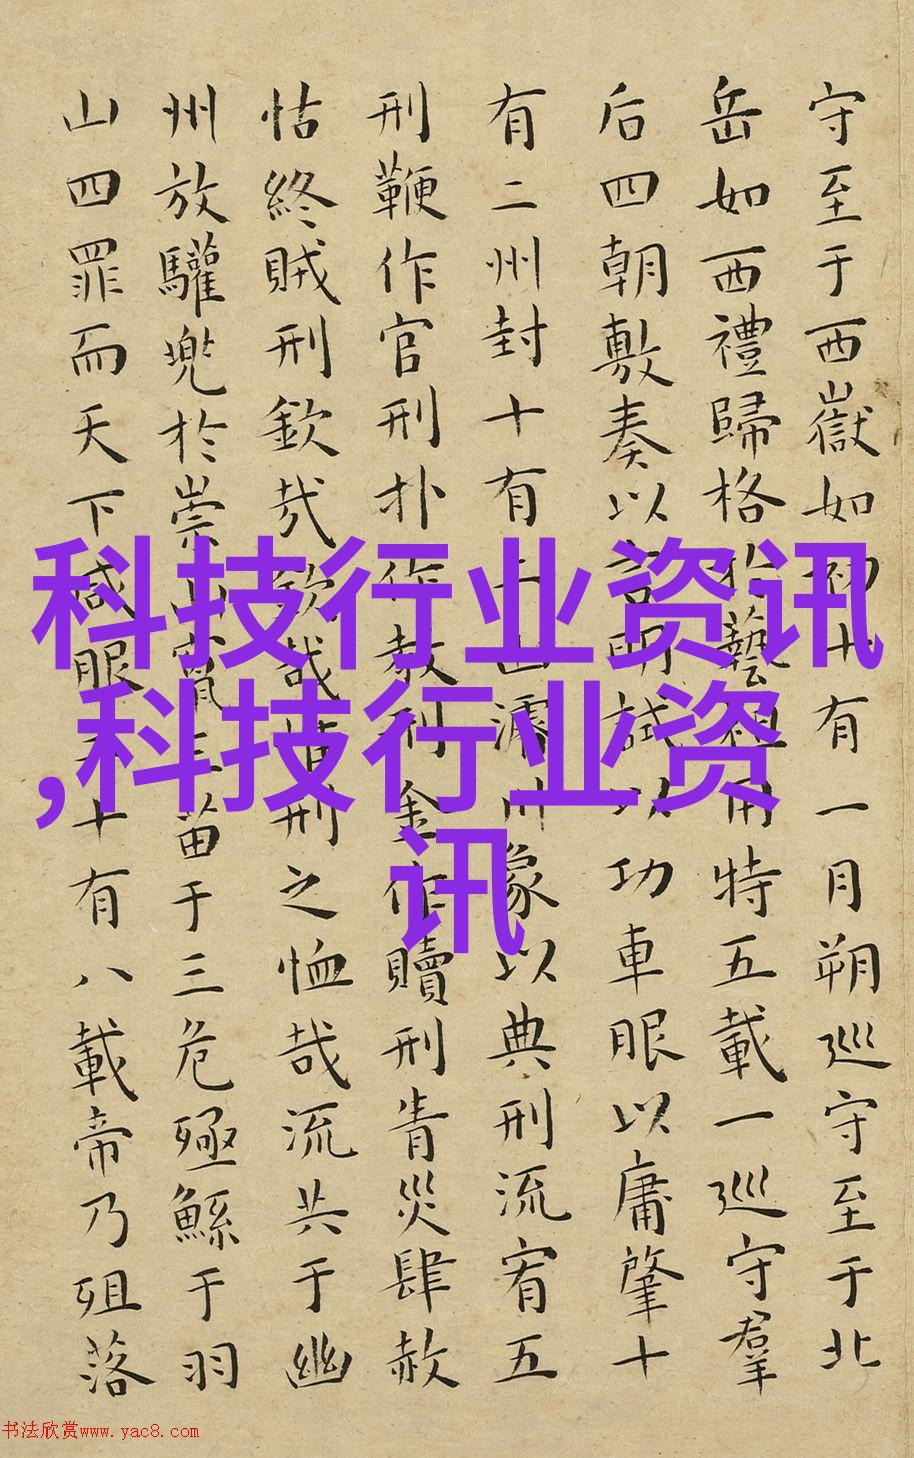 守至于西嶽如初十有一月朔巡守至于北
岳如西禮歸格於藝祖用特五載一巡守羣
后四朝敷奏以言明試以功車服以庸肇十
有二州封十有二山濬川象以典刑流宥五
刑鞭作官刑扑作教刑金作贖刑眚災肆赦
怙終賊刑欽哉欽哉惟刑之恤哉流共于幽
州放驩兜於崇山竄三苗于三危殛鯀于羽
山四罪而天下咸服二十有八載帝乃殂落
科技行业资讯
,科技行业资
讯
书法欣赏www.yac8.com